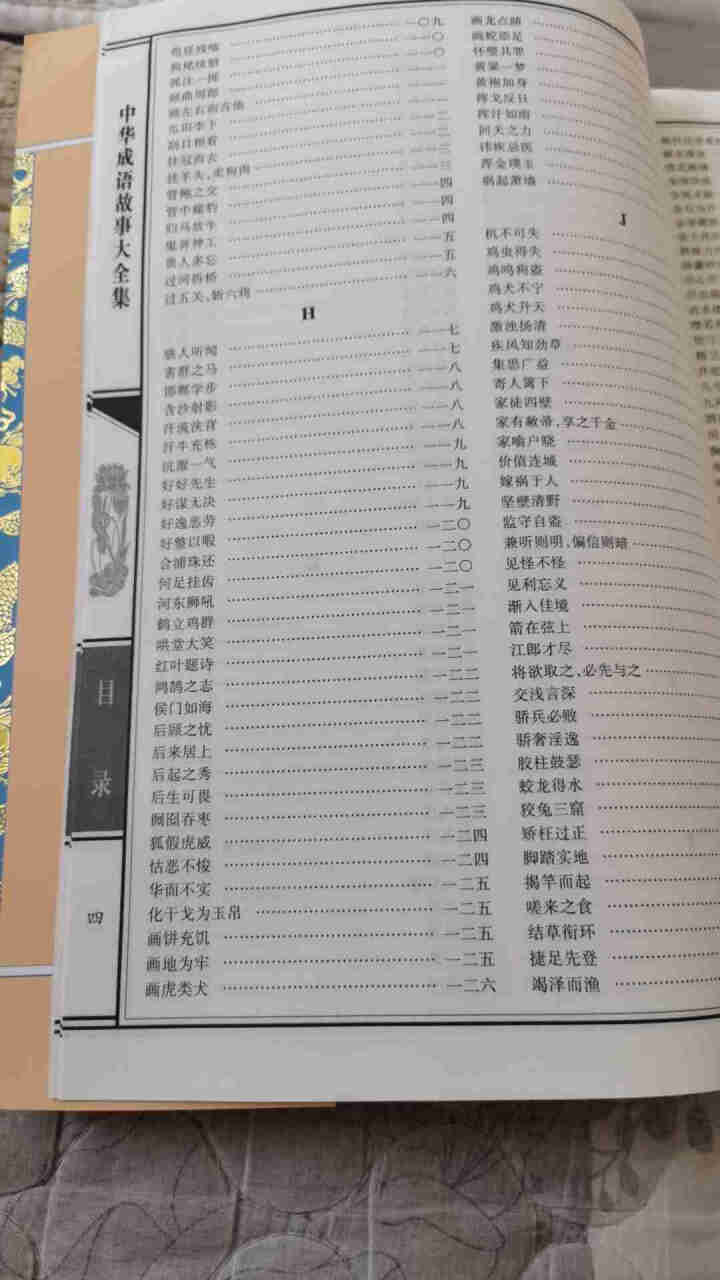 中华成语故事大全集
目录
四
狗尾续貂 一一〇
孤注一掷 一一〇
顾曲周郎
顾左右而言他
瓜田李下
刮目相看 一一二
挂冠而去 一一二
挂羊头,卖狗肉 一一三
管鲍之交 一一三
管中窥豹 一一四
归马放牛 一一四
鬼斧神工 一一四
贵人多忘 一一五
过河拆桥 一一五
过五关,斩六将 一一六
H
骇人听闻 一一七
害群之马 一一七
邯郸学步 一一八
含沙射影 一一八
汗流浃背 一一八
汗牛充栋 一一八
沆瀣一气 一一九
好好先生 一一九
好谋无决 一一九
好逸恶劳 一一九
好整以暇 一二〇
合浦珠还 一二〇
何足挂齿 一二一
河东狮吼 一二一
鹤立鸡群 一二一
哄堂大笑 一二一
红叶题诗 一二二
鸿鹄之志 一二二
侯门如海 一二二
后顾之忧 一二二
后来居上 一二三
后起之秀 一二三
后生可畏 一二三
囫囵吞枣 一二四
狐假虎威 一二四
怙恶不悛 一二五
华而不实 一二五
化干戈为玉帛 一二五
画饼充饥 一二五
画地为牢 一二五
画虎类犬 一二六
画龙点睛
画蛇添足
怀璧其罪
黄粱一梦
黄袍加身
挥戈反日
挥汗如雨
回天之力
讳疾忌医
浑金璞玉
祸起萧墙
J
机不可失
鸡虫得失
鸡鸣狗盗
鸡犬不宁
鸡犬升天
激浊扬清
疾风知劲草
集思广益
寄人篱下
家徒四壁
家有敝帚,享之千金
家喻户晓
价值连城
嫁祸于人
坚壁清野
监守自盗
兼听则明,偏信则暗
见怪不怪
见利忘义
渐入佳境
箭在弦上
江郎才尽
将欲取之,必先与之
交浅言深
骄兵必败
骄奢淫逸
胶柱鼓瑟
蛟龙得水
狡兔三窟
矫枉过正
脚踏实地
揭竿而起
嗟来之食
结草衔环
捷足先登
竭泽而渔